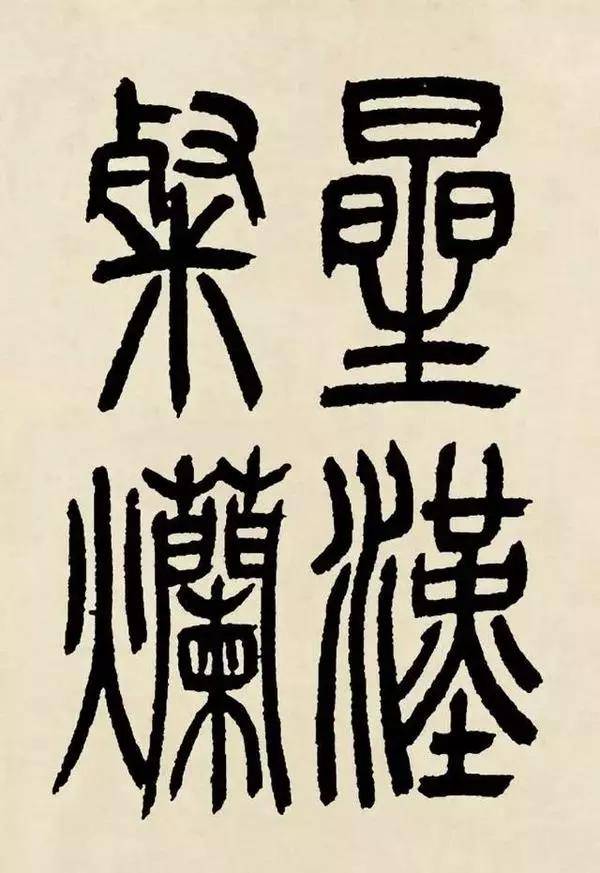 星漢
粲爛